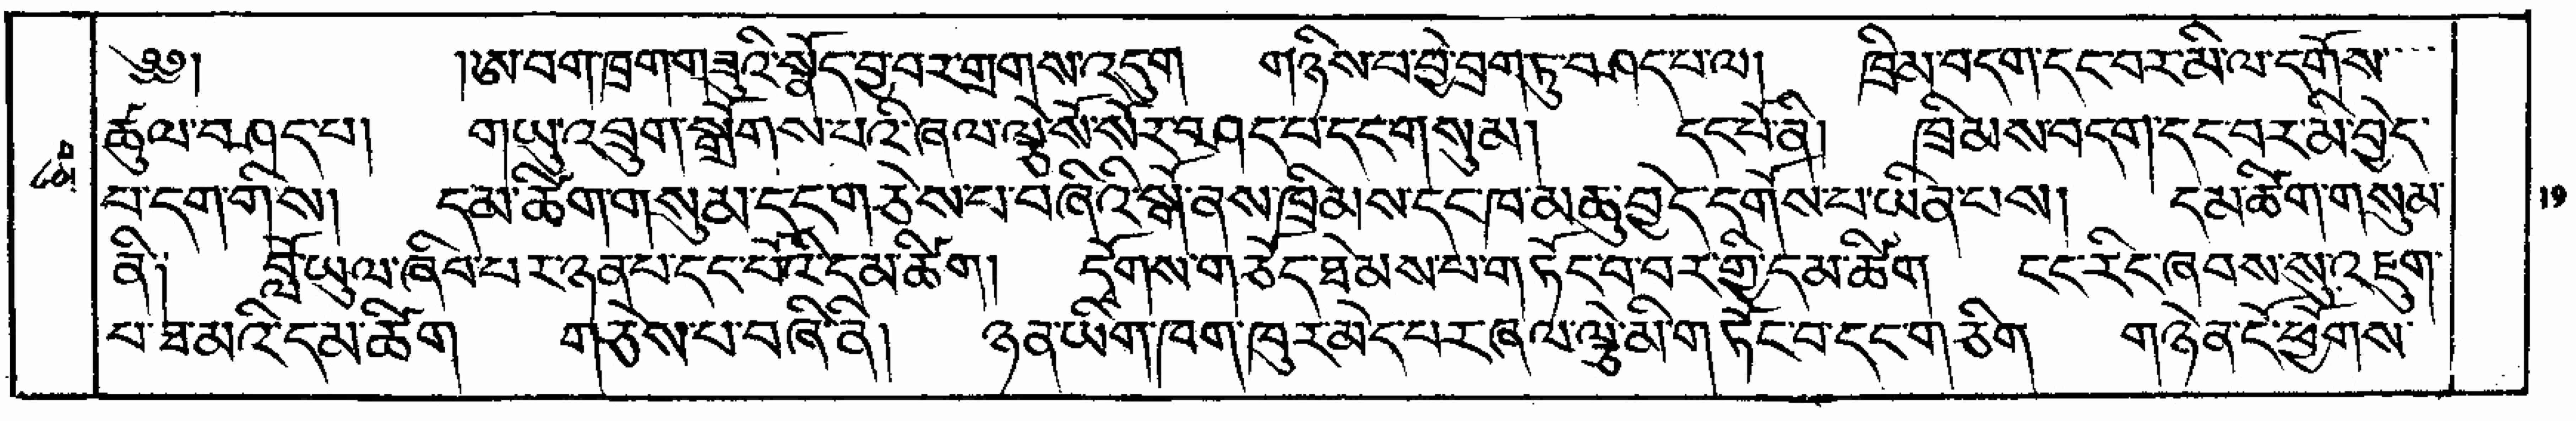 ༄༅། །ཨ་བག་ཁྲག་གཟུའི་སྣོད་བྱ་བར་གྲགས་འདུག གཉིས་པ་བྱེ་བྲག་ཏུ་བཤད་པ་ལ། ཁྲིམ་བདག་དང་བར་མི་ལ་དགོས་
ཚུལ་བཤད་པ། གཡུ་འབྲུག་སྒྲོགས་པའི་ཞལ་ལྕེ་སོ་སོར་བཤད་པ་དང་གསུམ། དང་པོ་ནི། ཁྲིམས་བདག་དང་བར་མི་བྱེད་
པ་དག་གིས། དམ་ཚིག་གསུམ་དང་གཅེས་པ་བཞིའི་སྒོ་ནས་ཁྲིམས་དང་ཁ་མཆུ་བྱེད་དགོས་པ་ཡིན་པས། དམ་ཚིག་གསུམ་
ནི། བློ་ཡུལ་ཞིབ་པར་ཉན་པ་དང་པོའི་དམ་ཚིག། དྭོགས་གཅོད་ཐེམས་པ་གཏོང་བ་བར་གྱི་དམ་ཚིག ངང་རིང་ཞབས་སུ་འཇུག་
པ་ཐ་མའི་དམ་ཚིག གཅེས་པ་བཞི་ནི། ཉན་ཡིག་ཁག་ཁུར་མེད་པར་ཞལ་ལྕེ་མི་གཏོང་བ་དང་གཅིག གཉེན་ངོ་ཕྱོགས་